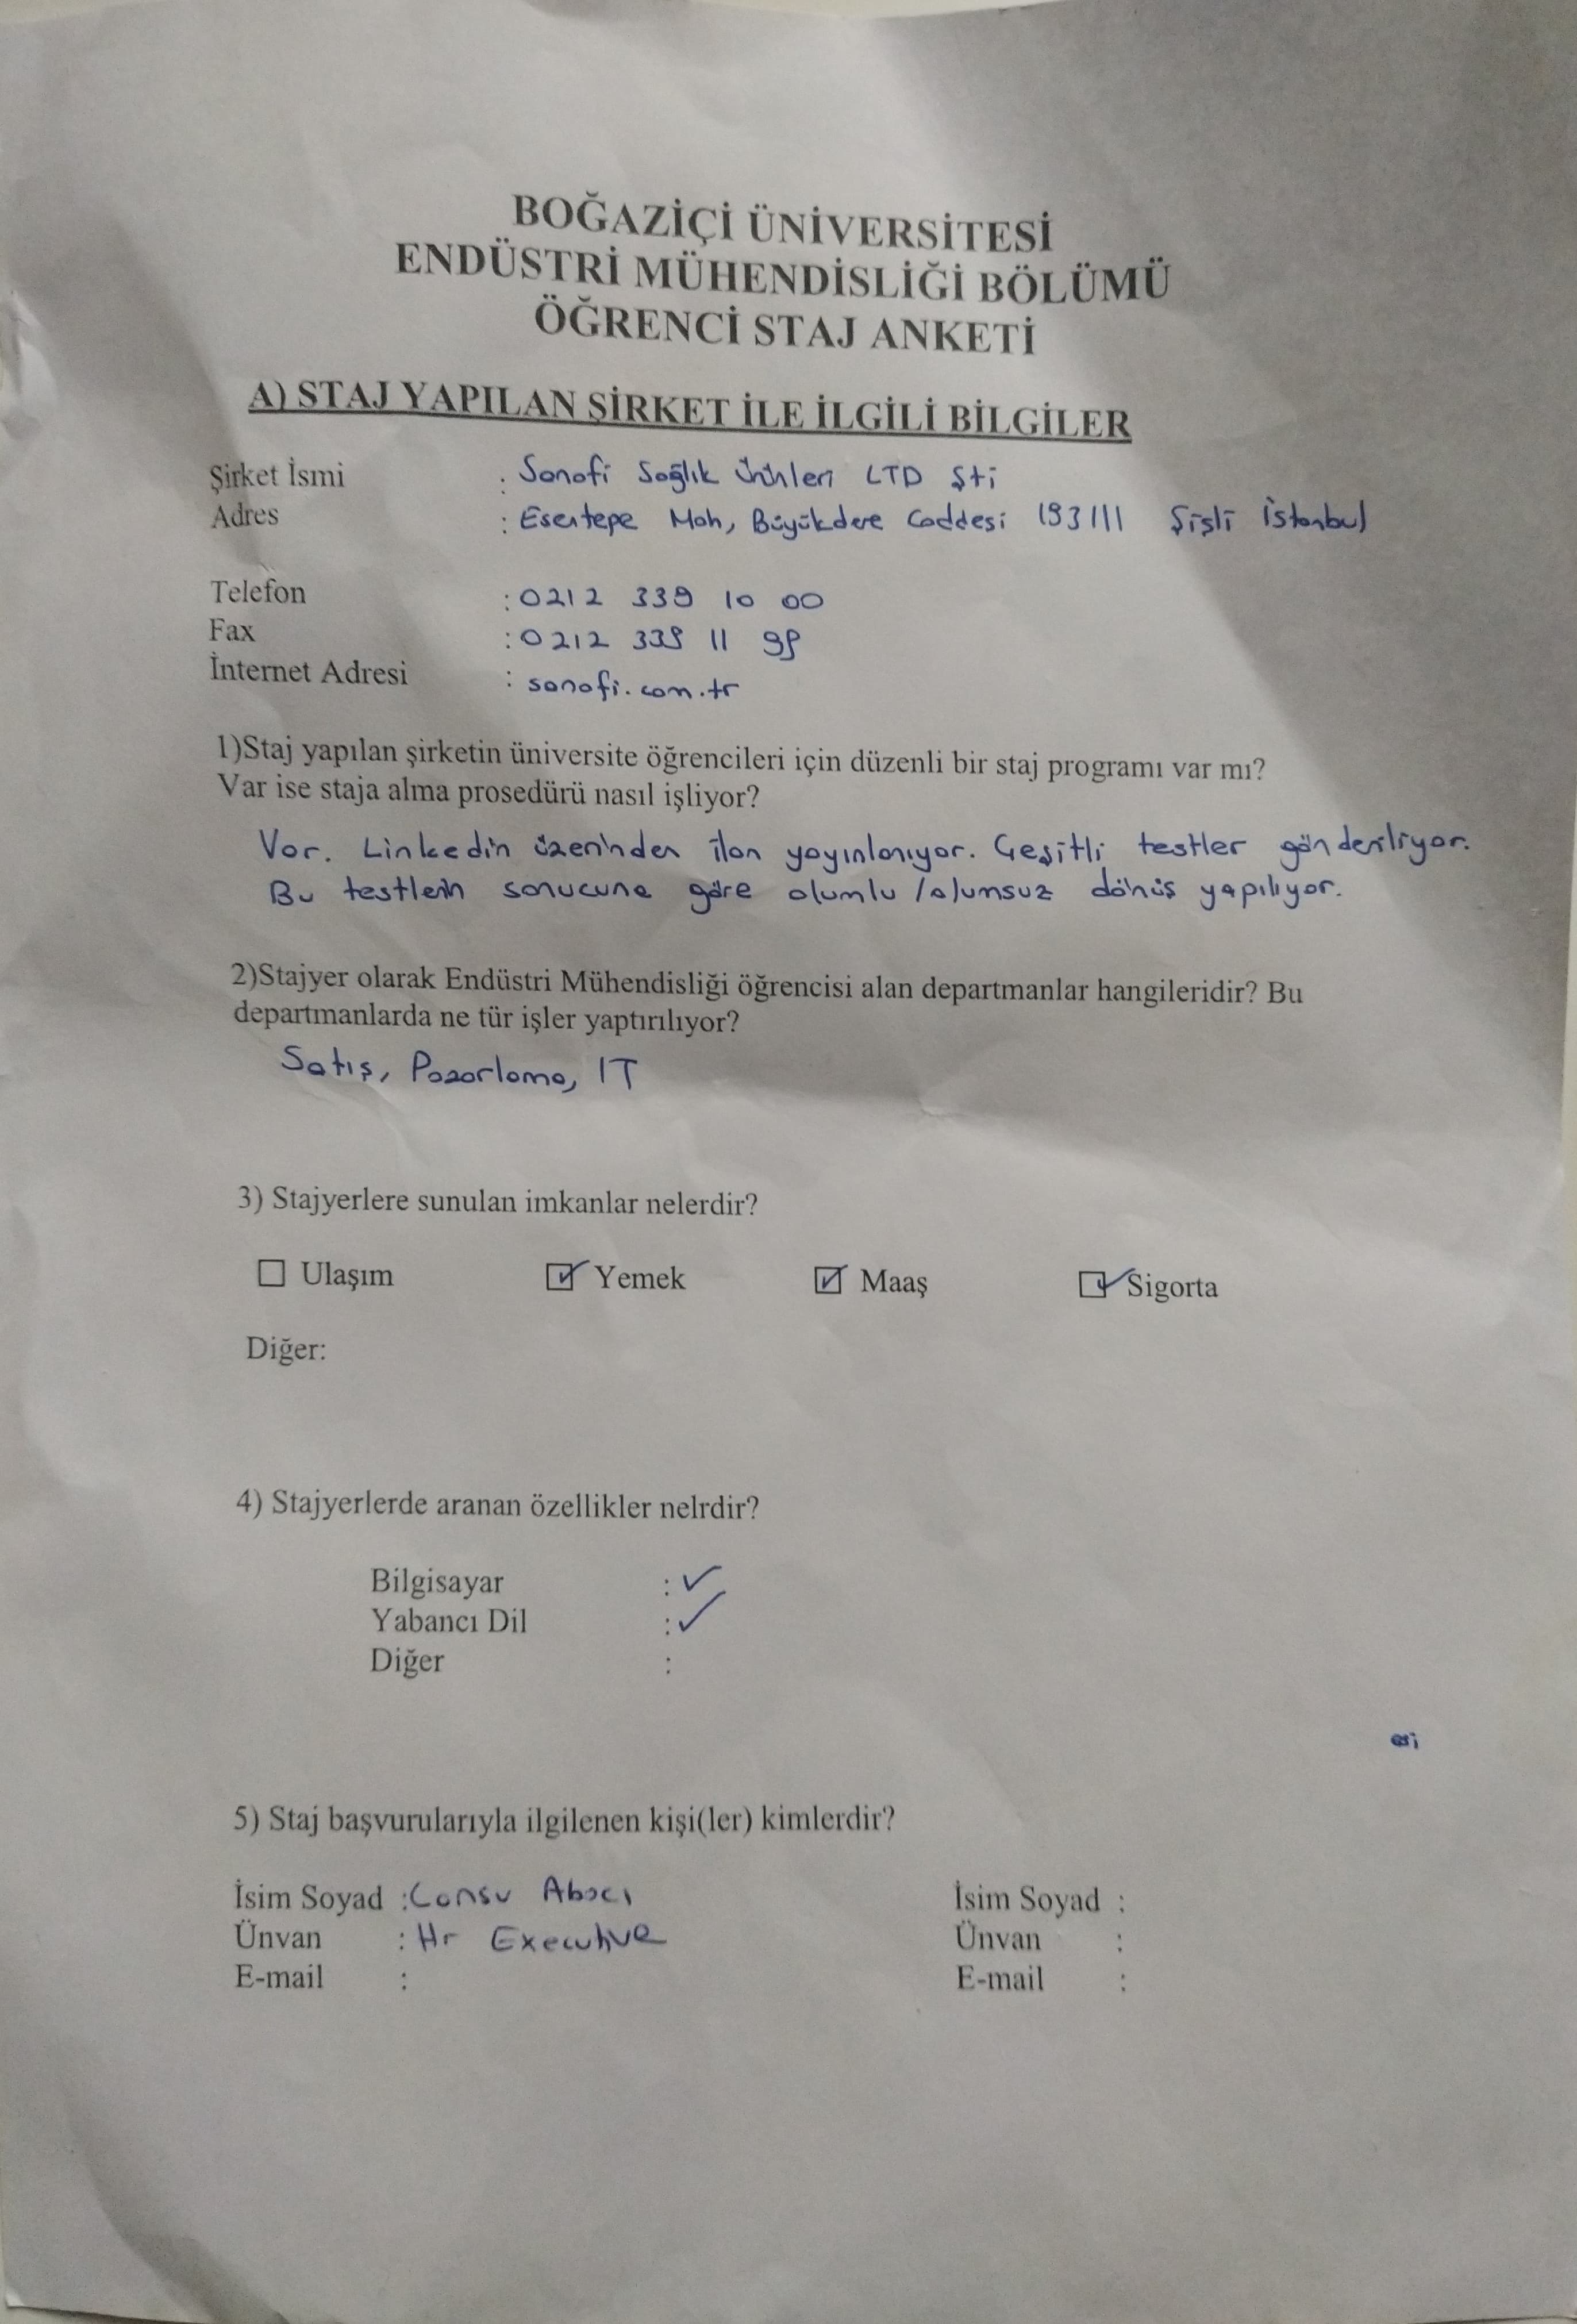 BOĞAZİÇİ ÜNİVERSİTESİ
ENDÜSTRİ MÜHENDİSLİĞİ BÖLÜMÜ
ÖĞRENCİ STAJ ANKETİ
A) STAJ YAPILAN ŞİRKET İLE İLGİLİ BİLGİLER
Şirket İsmi : Sanofi Sağlık Ürünleri LTD Şti
Adres : Esentepe Mah, Büyükdere Caddesi 193 Şişli İstanbul
Telefon : 0212 339 10 00
Fax : 0212 339 11 99
İnternet Adresi : sanofi.com.tr
1)Staj yapılan şirketin üniversite öğrencileri için düzenli bir staj programı var mı?
Var ise staja alma prosedürü nasıl işliyor?
Var. Linkedin üzerinden ilan yayınlanıyor. Çeşitli testler gönderiliyor.
Bu testlerin sonucuna göre olumlu/olumsuz dönüş yapılıyor.
2)Stajyer olarak Endüstri Mühendisliği öğrencisi alan departmanlar hangileridir? Bu
departmanlarda ne tür işler yaptırılıyor?
Satış, Pazarlama, IT
3) Stajyerlere sunulan imkanlar nelerdir?
☐ Ulaşım ☑ Yemek ☑ Maaş ☑ Sigorta
Diğer:
4) Stajyerlerde aranan özellikler nelrdir?
Bilgisayar : ✓
Yabancı Dil : ✓
Diğer :
5) Staj başvurularıyla ilgilenen kişi(ler) kimlerdir?
İsim Soyad : Cansu Abacı İsim Soyad :
Ünvan : Hr Executive Ünvan :
E-mail : E-mail :